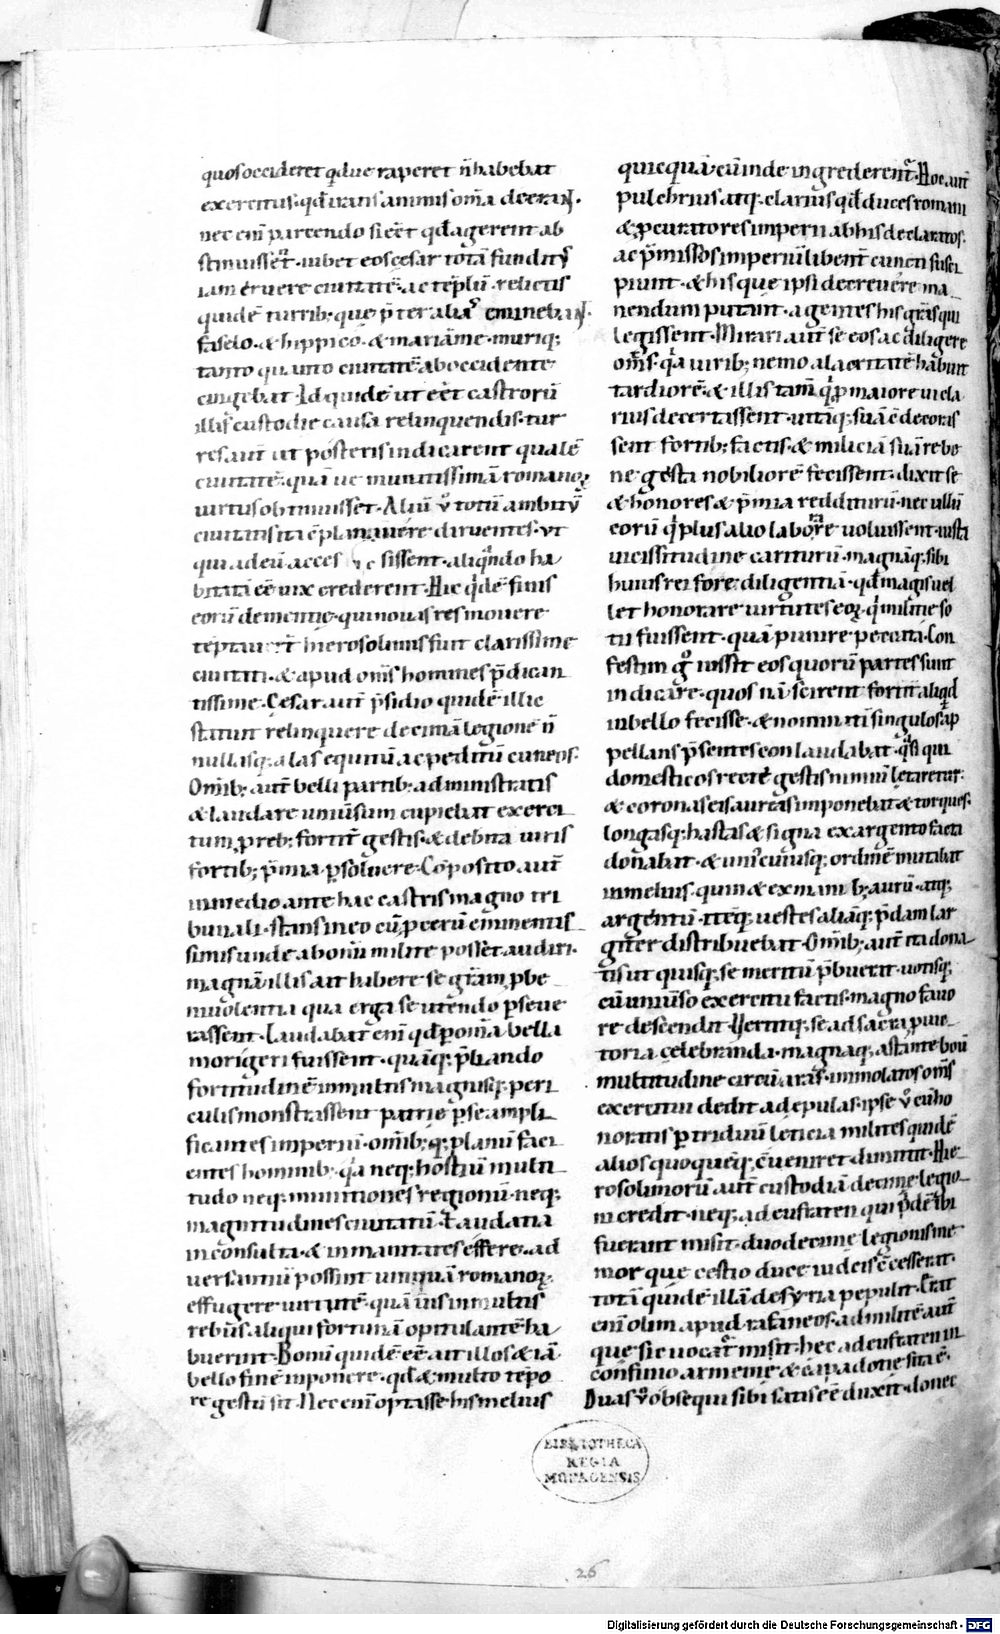 quos occideret qd̕ue raperet n̄ habebat
exercitus· qd̕ irans animis om̄a deeran̄t·
nec eni᷒ parcendo si eēt qd̕ agerent ab
stinuisset· iubet eos cesar totā funditꝰ
iam eruere ciuitatē· ac teplū· relictis
quidē turrib; que p̄ter alias eminebant·
faselo· & hippico· & mariāme· muriq;
tanto quanto ciuitatē ab occidente
cingebat· Id quidē ut eēt castrorū
illic custodie causa relinquendis· tur
res aut̄ ut posteris indicarent qualē
ciuitatē· quā ue munitissimā romanoꝝ
uirtus obtinuisset· Aliū ū totū ambitū
ciuitatis ita cplanauere diruentes· ut
qui ad eū acces sissent· aliqndo ha
bitatā eē uix crederent· Hic qdē finis
eorū dementie· qui nouas res mouere
teptauert hierosolimis fuit clarissime
ciuitati· & apud om̄s homines p̄dican
tissime· Cesar aut̄ p̄sidio quidē illic
statuit relinquere decimā legionē n̄
nullasq; alas equitū ac peditū cuneos·
Omib; aut̄ belli partib; administratis
& laudare uniūsum cupiebat exerci
tum p reb; fortit̄ gestis· & debita uiris
fortib; p̄mia psoluere· Coposito aut̄
in medio ante hac castris magno tri
bunali· stans in eo cū pcerū eminentis
simis unde ab omi milite posset audiri·
magnā illis ait habere se gr̄am p be
niuolentia qua erga se utendo pseue
rassent· Laudabat eni᷒ qd̕ p om̄a bella
morigeri fuissent· quāq; p̄bando
fortitudinē in multis magnisq; peri
culis monstrassent patrie p se ampli
ficantes imperiū· omib; q; planū faci
entes hominib; qa neq; hostiū multi
tudo neq; munitiones regionū· neq;
magnitudines ciuitatū· t̄ audatia
inconsulta· & inmanitates effere· ad
uersantiū possint umquā romanoꝝ
effugere uirtutē· quāuis in multis
rebus aliqui fortunā opitulantē ha
buerint· Bonū quidē eē ait illos & iā
bello finē inponere· qd̕ & multo tepo
re gestū sit· Nec eni᷒ optasse his melius
quicquā cū inde ingrederent̄· Hoc aut̄
pulchrius atq; clarius qd̕ duces romani
& pcuratores imperii ab his declaratos·
ac p̄missos imperiū libent̄ cuncti susci
piunt· & his que ipsi decreuere ma
nendum putant· agentes his gr̄as qui
legissent· Mirari aut̄ se eos ac diligere
om̄s· qa uirib; nemo alacritatē habuit
tardiorē· & illis tam̄ q p maiore ui cla
rius decertassent· uitāq; suā edecoras
sent fortib; factis· & miliciā suā re bo
ne gesta nobiliorē fecissent· dixit se
& honores & p̄mia redditurū· nec ullū
eorū q plus alio labore uoluissent· iusta
uicissitudine cariturū· magnāq; sibi
huius rei fore diligentiā· qd̕ magis uel
let honorare uirtutes eoꝝ q militie so
tii fuissent· quā punire peccata· Con
festim g iussit eos quorū partes sunt
indicare· quos nā scirent fortit̄ aliqd
in bello fecisse· & nominatī singulos ap
pellans p̄sentes eon laudabat· qsi qui
domesticos recte gestis nimiū letaretur·
& coronas eis aureas imponebat & torques·
longasq; hastas & signa ex argento facta
donabat· & unicuiusq; ordinē mutabat
in melius· quin & ex manib; aurū atq;
argentū· itēq; uestes aliāq; p̄dam lar
giter distribuebat· Omib; aut̄ ita dona
tis ut quisq; se meritū p̄buerit· uotisq;
cū uniūso exercitu factis· magno fauo
re descendit· Vertitq; se ad sacra p uic
toria celebranda· magnaq; astante boū
multitudine circū aras· inmolatos om̄s
exercitui dedit ad epulas· ipse ū cū ho
noratis p triduū leticia milites quidē
alios quoqueq; cueniret dimittit· Hie
rosolimorū aut̄ custodiā decime legio
ni credit· neq; ad eufraten qui p̄dē ibi
fuerant misit· duodecime legionis me
mor que cestio duce iudeis cesserat·
totā quidē illā de syria pepulit· Erat
eni᷒ olim apud rafaneos· ad militē aut̄
que sic uocat̄ misit· hec ad eufraten in
confinio armenie & capadotie sita ē·
Duas ū obsequi sibi satis eē duxit· donec
BIBLIOTHECA
REGIA
MONACENSIS
26
Digitalisierung gefördert durch die Deutsche Forschungsgemeinschaft - DFG